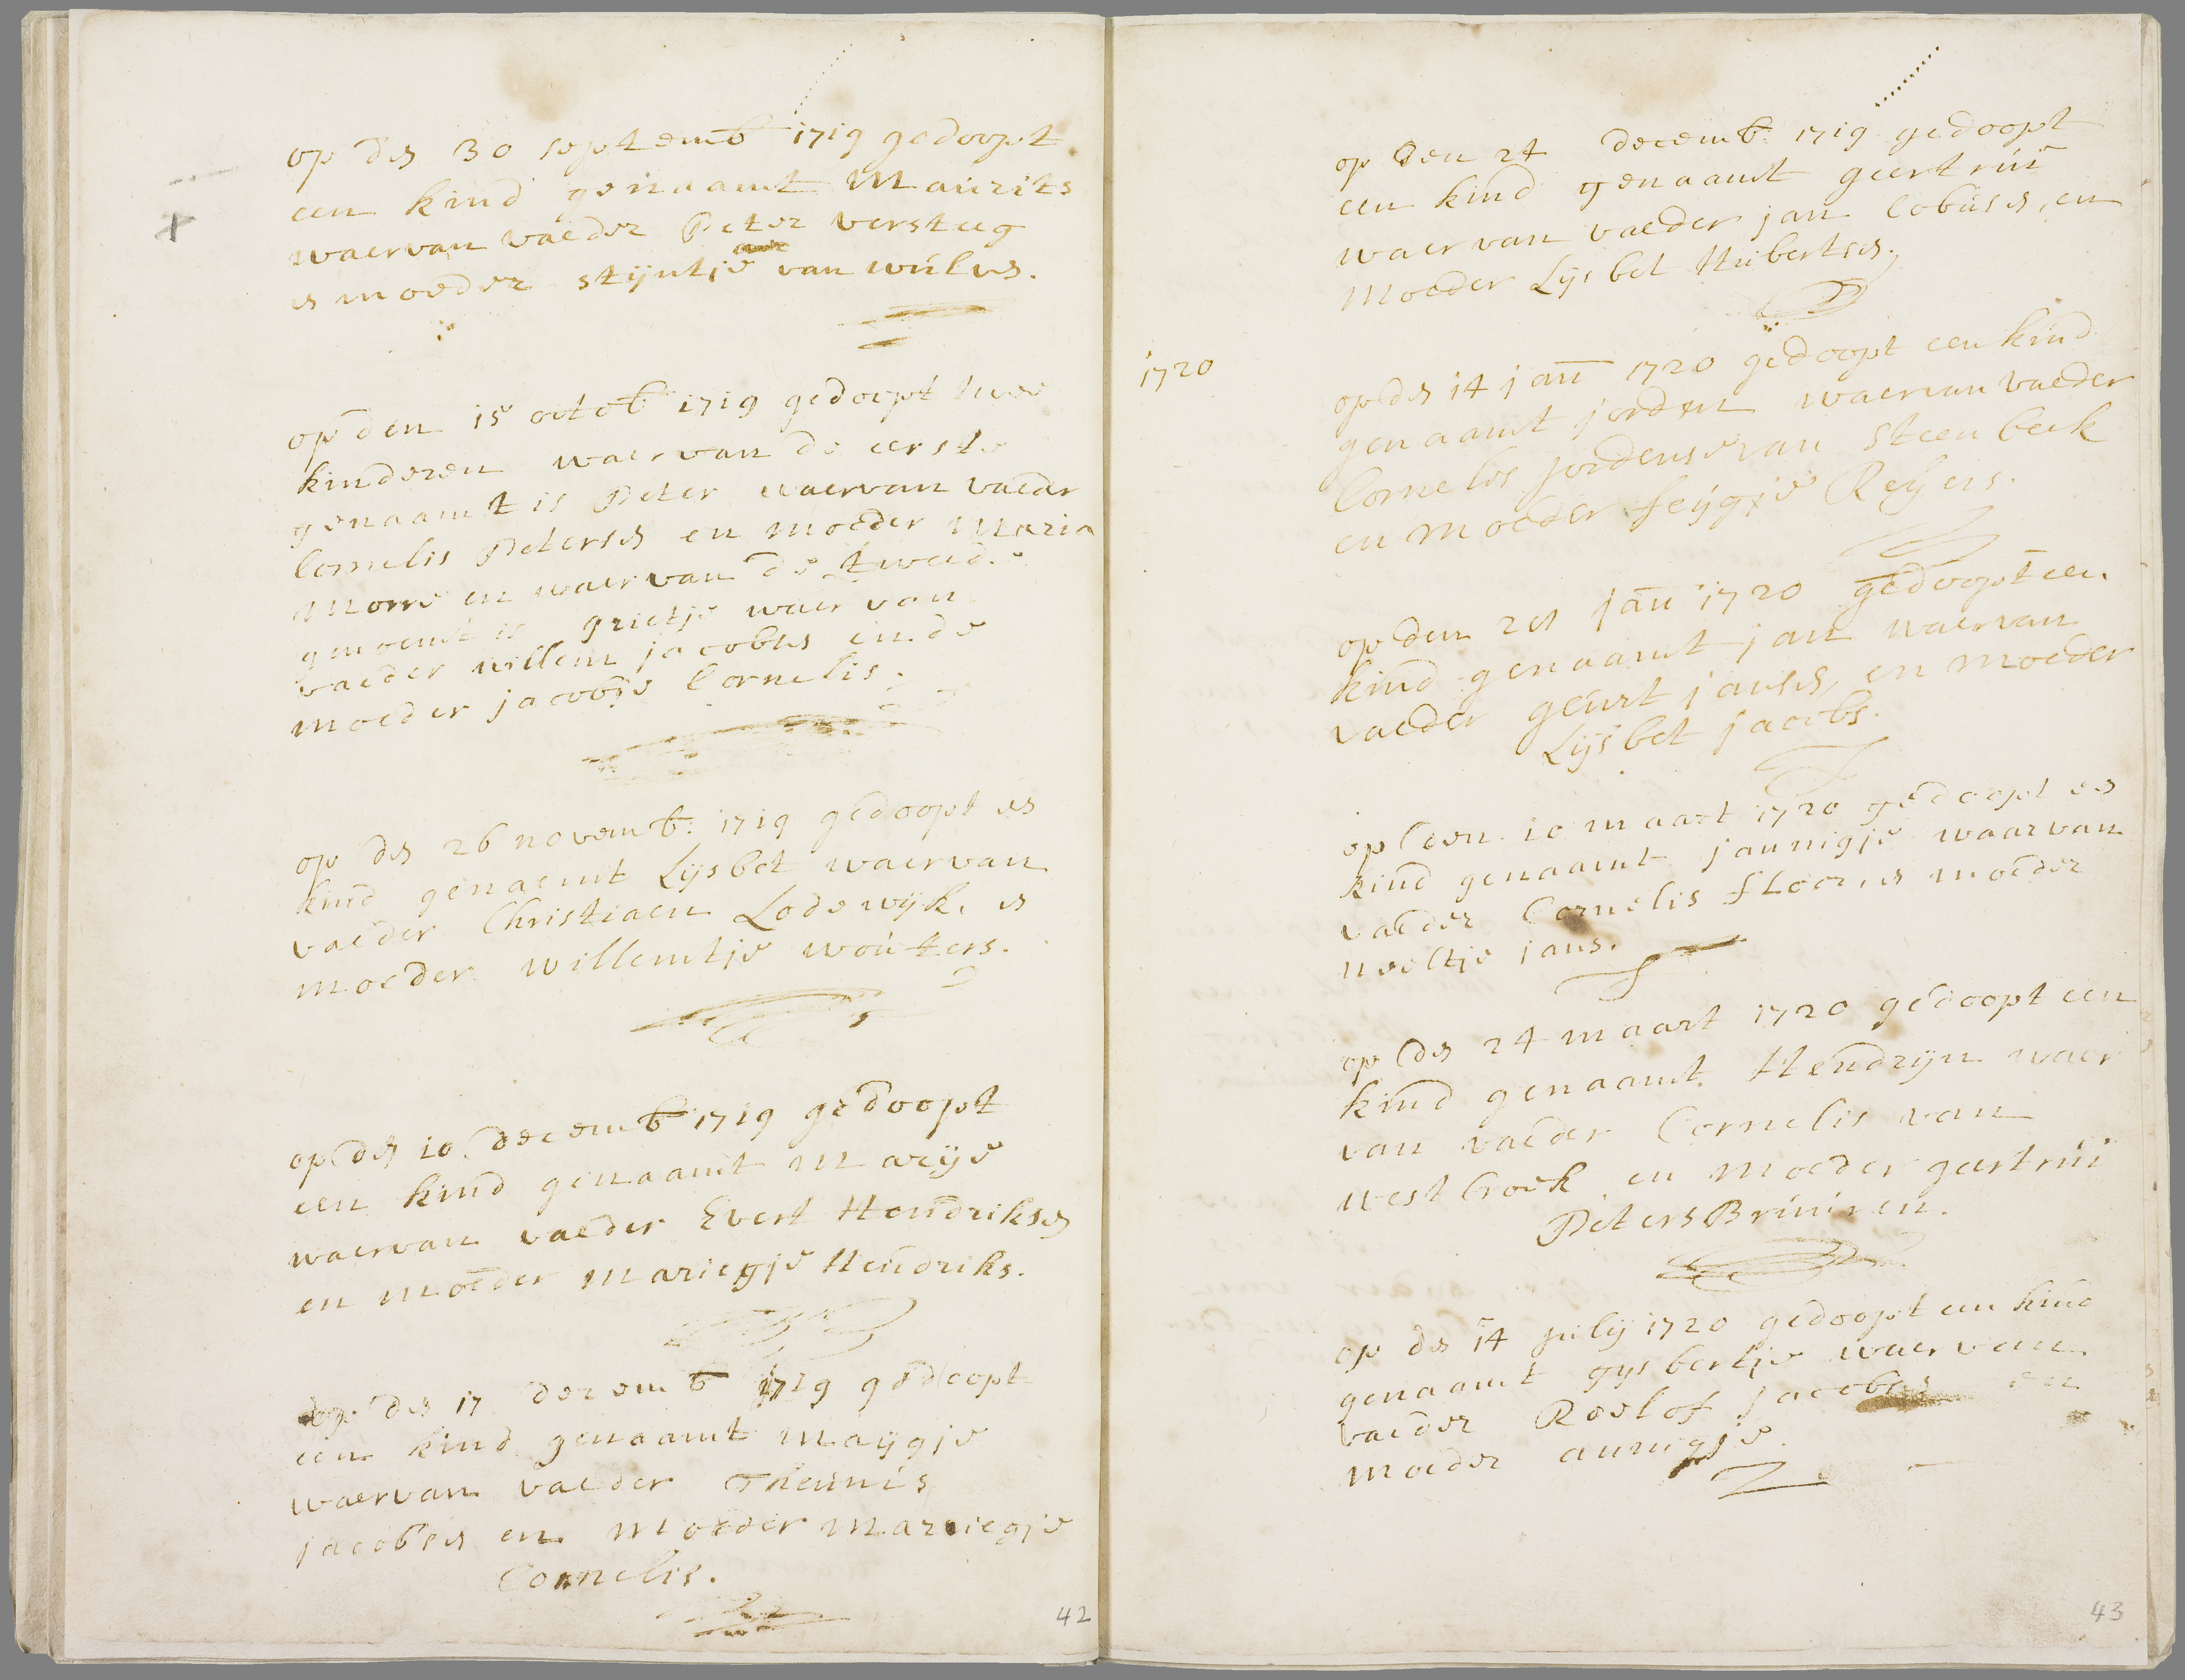 op den 30 septemb 1719 gedoopt
een kind genaamt Maurits
waervan vaeder Peter versteeg
en moeder stijntje van wulven.
op den 15 octob 1719 gedoopt twee
kinderen waervan de eerste
genaamt is Peter waervan vaeder
Cornelis Petersen en moeder Maria
Morre en waervan de tweede
genoemt is grietje waer van
vaeder willem jacobsen ende
moeder jacobje Cornelis.
op den 26 novemb: 1719 gedoopt een
kind genaemt Lijsbet waervan
vaeder Christiaen Lodewijk, en
moeder willemtje wouters.
op den 10 decemb 1719 gedoopt
een kind genaamt Marijе
waervan vaeder Evert Hendriksen
en moeder Mariegje Hendriks.
op den 17 decemb 1719 gedoopt
een kind genaamt Maijgje
waervan vaeder Theunis
jacobsen en moeder Mariegje
Cornelis.
42
op den 24 decemb: 1719 gedoopt
een kind genaamt geertrui
waervan vaeder jan Cobusen, en
Moeder Lijsbet Hubertsen.
1720
op den 14 jan 1720 gedoopt een kind
genaamt jorden waervan vaeder
Cornelis jordense van Steenbeek
en moeder feijgje Reijers.
op den 21 jan 1720 gedoopt een
kind genaamt jan waervan
vaeder geurt jansen, en moeder
Lijsbet jacobs.
op den 10 maart 1720 gedoopt een
kind genaamt jannigje waarvan
vaeder Cornelis floor, en moeder
neeltje jans.
op den 24 maart 1720 gedoopt een
kind genaamt Hendrijn waer
van vaeder Cornelis van
westbroek en moeder geertrui
Peters Bruinen.
op den 14 julij 1720 gedoopt een kind
genaamt gijsbertje waervan
vaeder Roelof jacobsen en
moeder annigje.
43